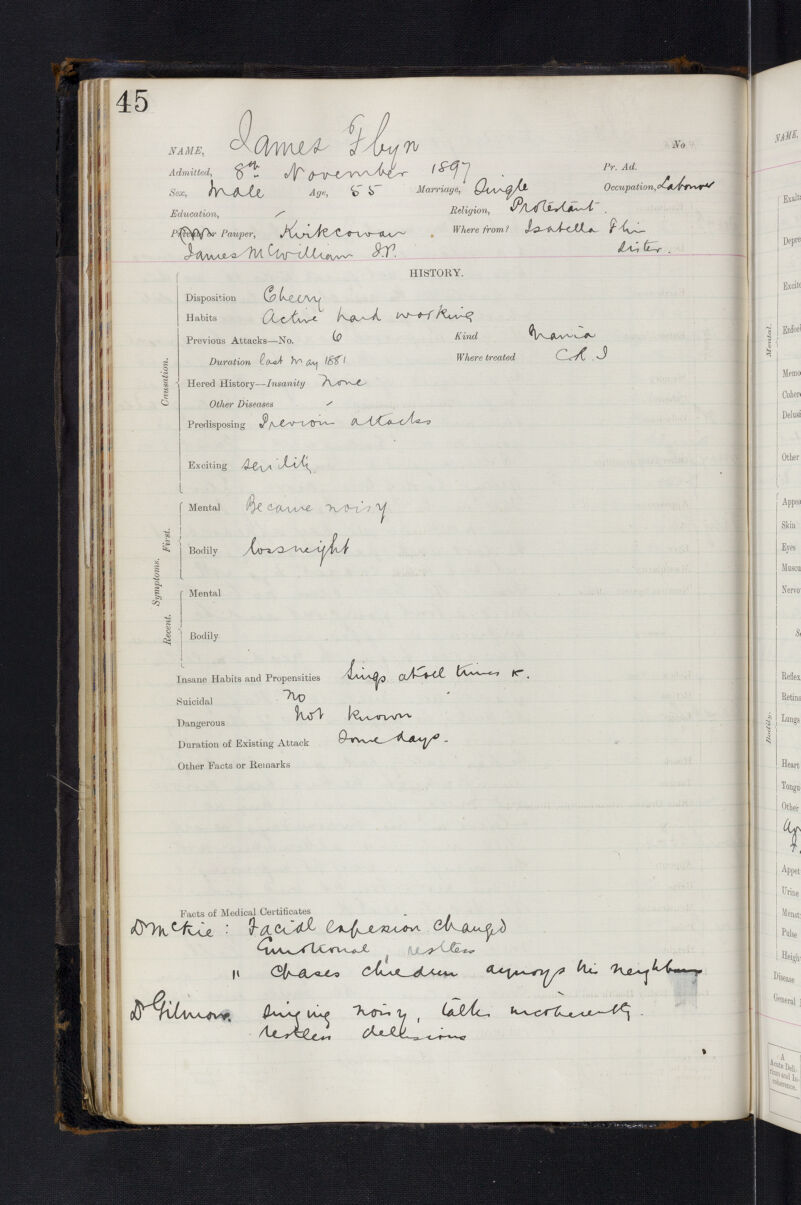 45
NAME, James Flyn No
Admitted, 8th November 1897 Pr. Ad.
Sex, Male Age, 55 Marriage, Single Occupation, Labourer
Education, Religion, Protestant.
Private or Pauper, Kirkcowan Where from? Isabella Flin
James McWilliam J.P. Sister.
HISTORY.
Causation.
Disposition Cheery
Habits Active hard working
Previous Attacks—No. 6 Kind Mania
Duration last May 1881 Where treated C.R.I
Hered History—Insanity None
Other Diseases
Predisposing Previous attacks
Exciting senility
Symptoms.
First.
Mental Became noisy
Bodily loss weight
Recent.
Mental
Bodily
Insane Habits and Propensities Sings at all times
Suicidal No
Dangerous Not known
Duration of Existing Attack Some days.
Other Facts or Remarks
Facts of Medical Certificates
Dr McKie : Facial expression changed
Emotional, restless
" Chases children annoys his neighbours
Dr Gilmour. Singing noisy, talks incoherently.
restless delusions
NAME,
Mental.
Bodily.
Skin
Eyes
Lungs
Heart
Other
Urine
Pulse
Disease
General
A
Acute Deli-
rium and In-
coherence.